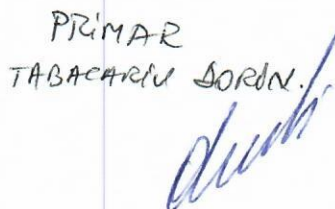 PRIMAR
TABACARIU DORIN.